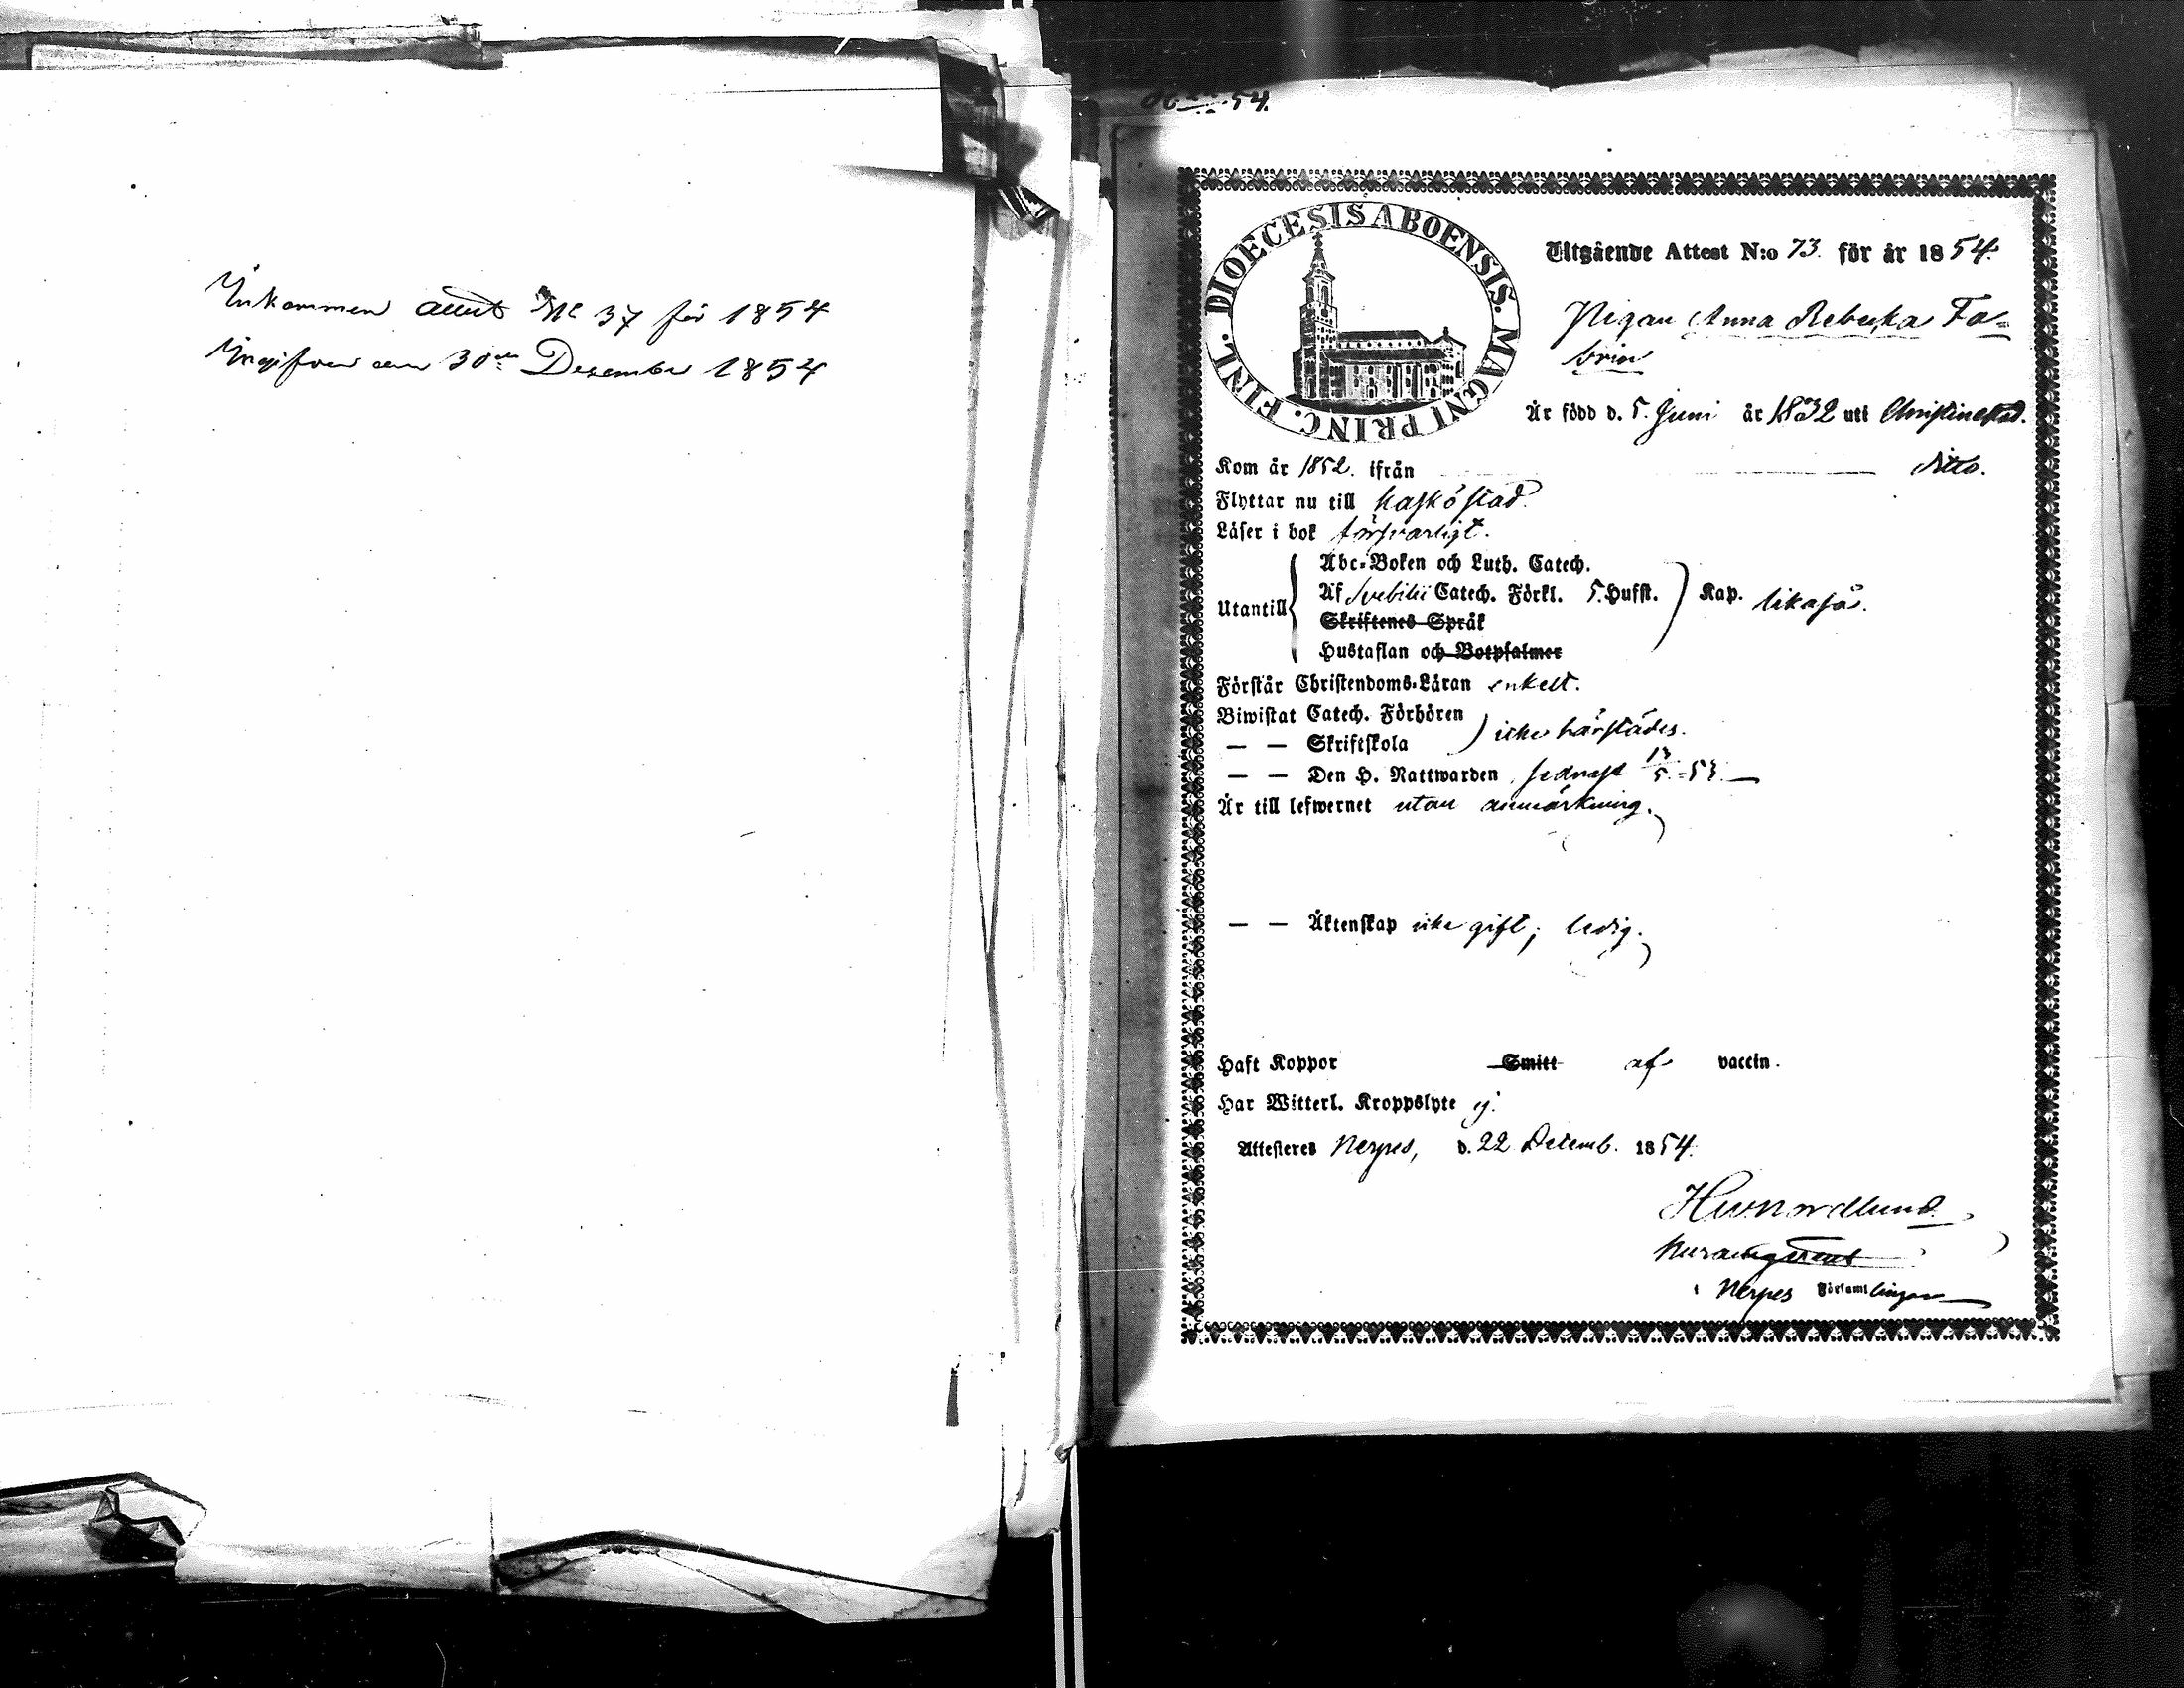 Inkommen attest No 37 för 1854
Ingifven den 30de Dezember 1854
54.
DIOECESIS ABOENSIS. MAGNI PRINC. FINL.
Utgående Attest N:o 73. för år 1854.
Pigan Anna Rebecka Fa=
brin
Är född d. 5. Juni år 1832 uti Christinestad.
Kom år 1852. ifrån ditto.
Flyttar nu till Kaskö stad.
Läser i bok försvarligt.
Utantill
Abc-Boken och Luth. Catech.
Af Svebilii Catech. Förkl. 5. Hufst. Kap. likaså.
Skriftenes Språk
Hustaflan och Botpsalmer
Förstår Christendoms-Läran enkelt.
Biwistat Catech. Förhören
— — Skriftskola icke härstädes.
— — Den H. Nattwarden sednast 17/5 -53.
Är till lefwernet utan anmärkning.
— — Äktenskap icke gift; ledig.
Haft Koppor Smitt af vaccin.
Har Witterl. Kroppslyte ej.
Attesteres Nerpes, d. 22 Decemb. 1854.
Nordlund.
i Nerpes Församlingar